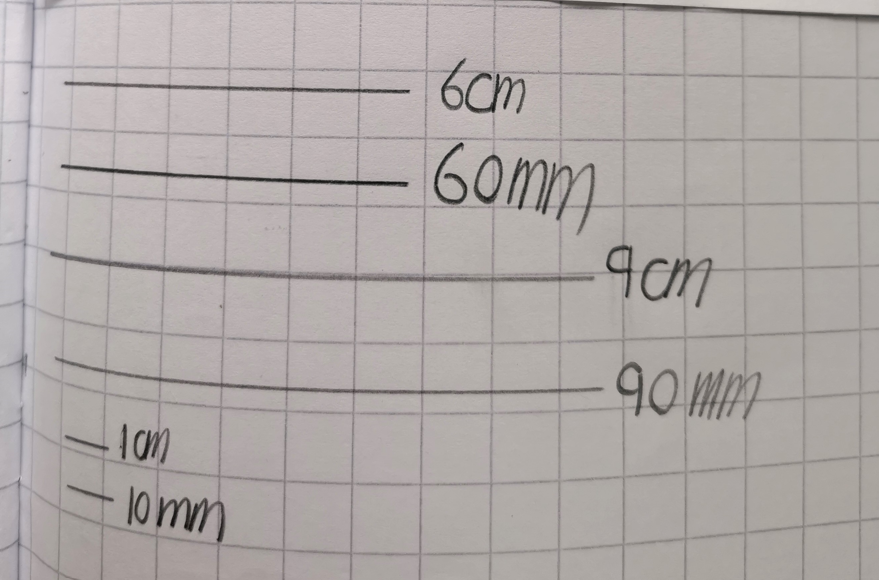 6cm
60mm
9cm
90mm
1cm
10mm